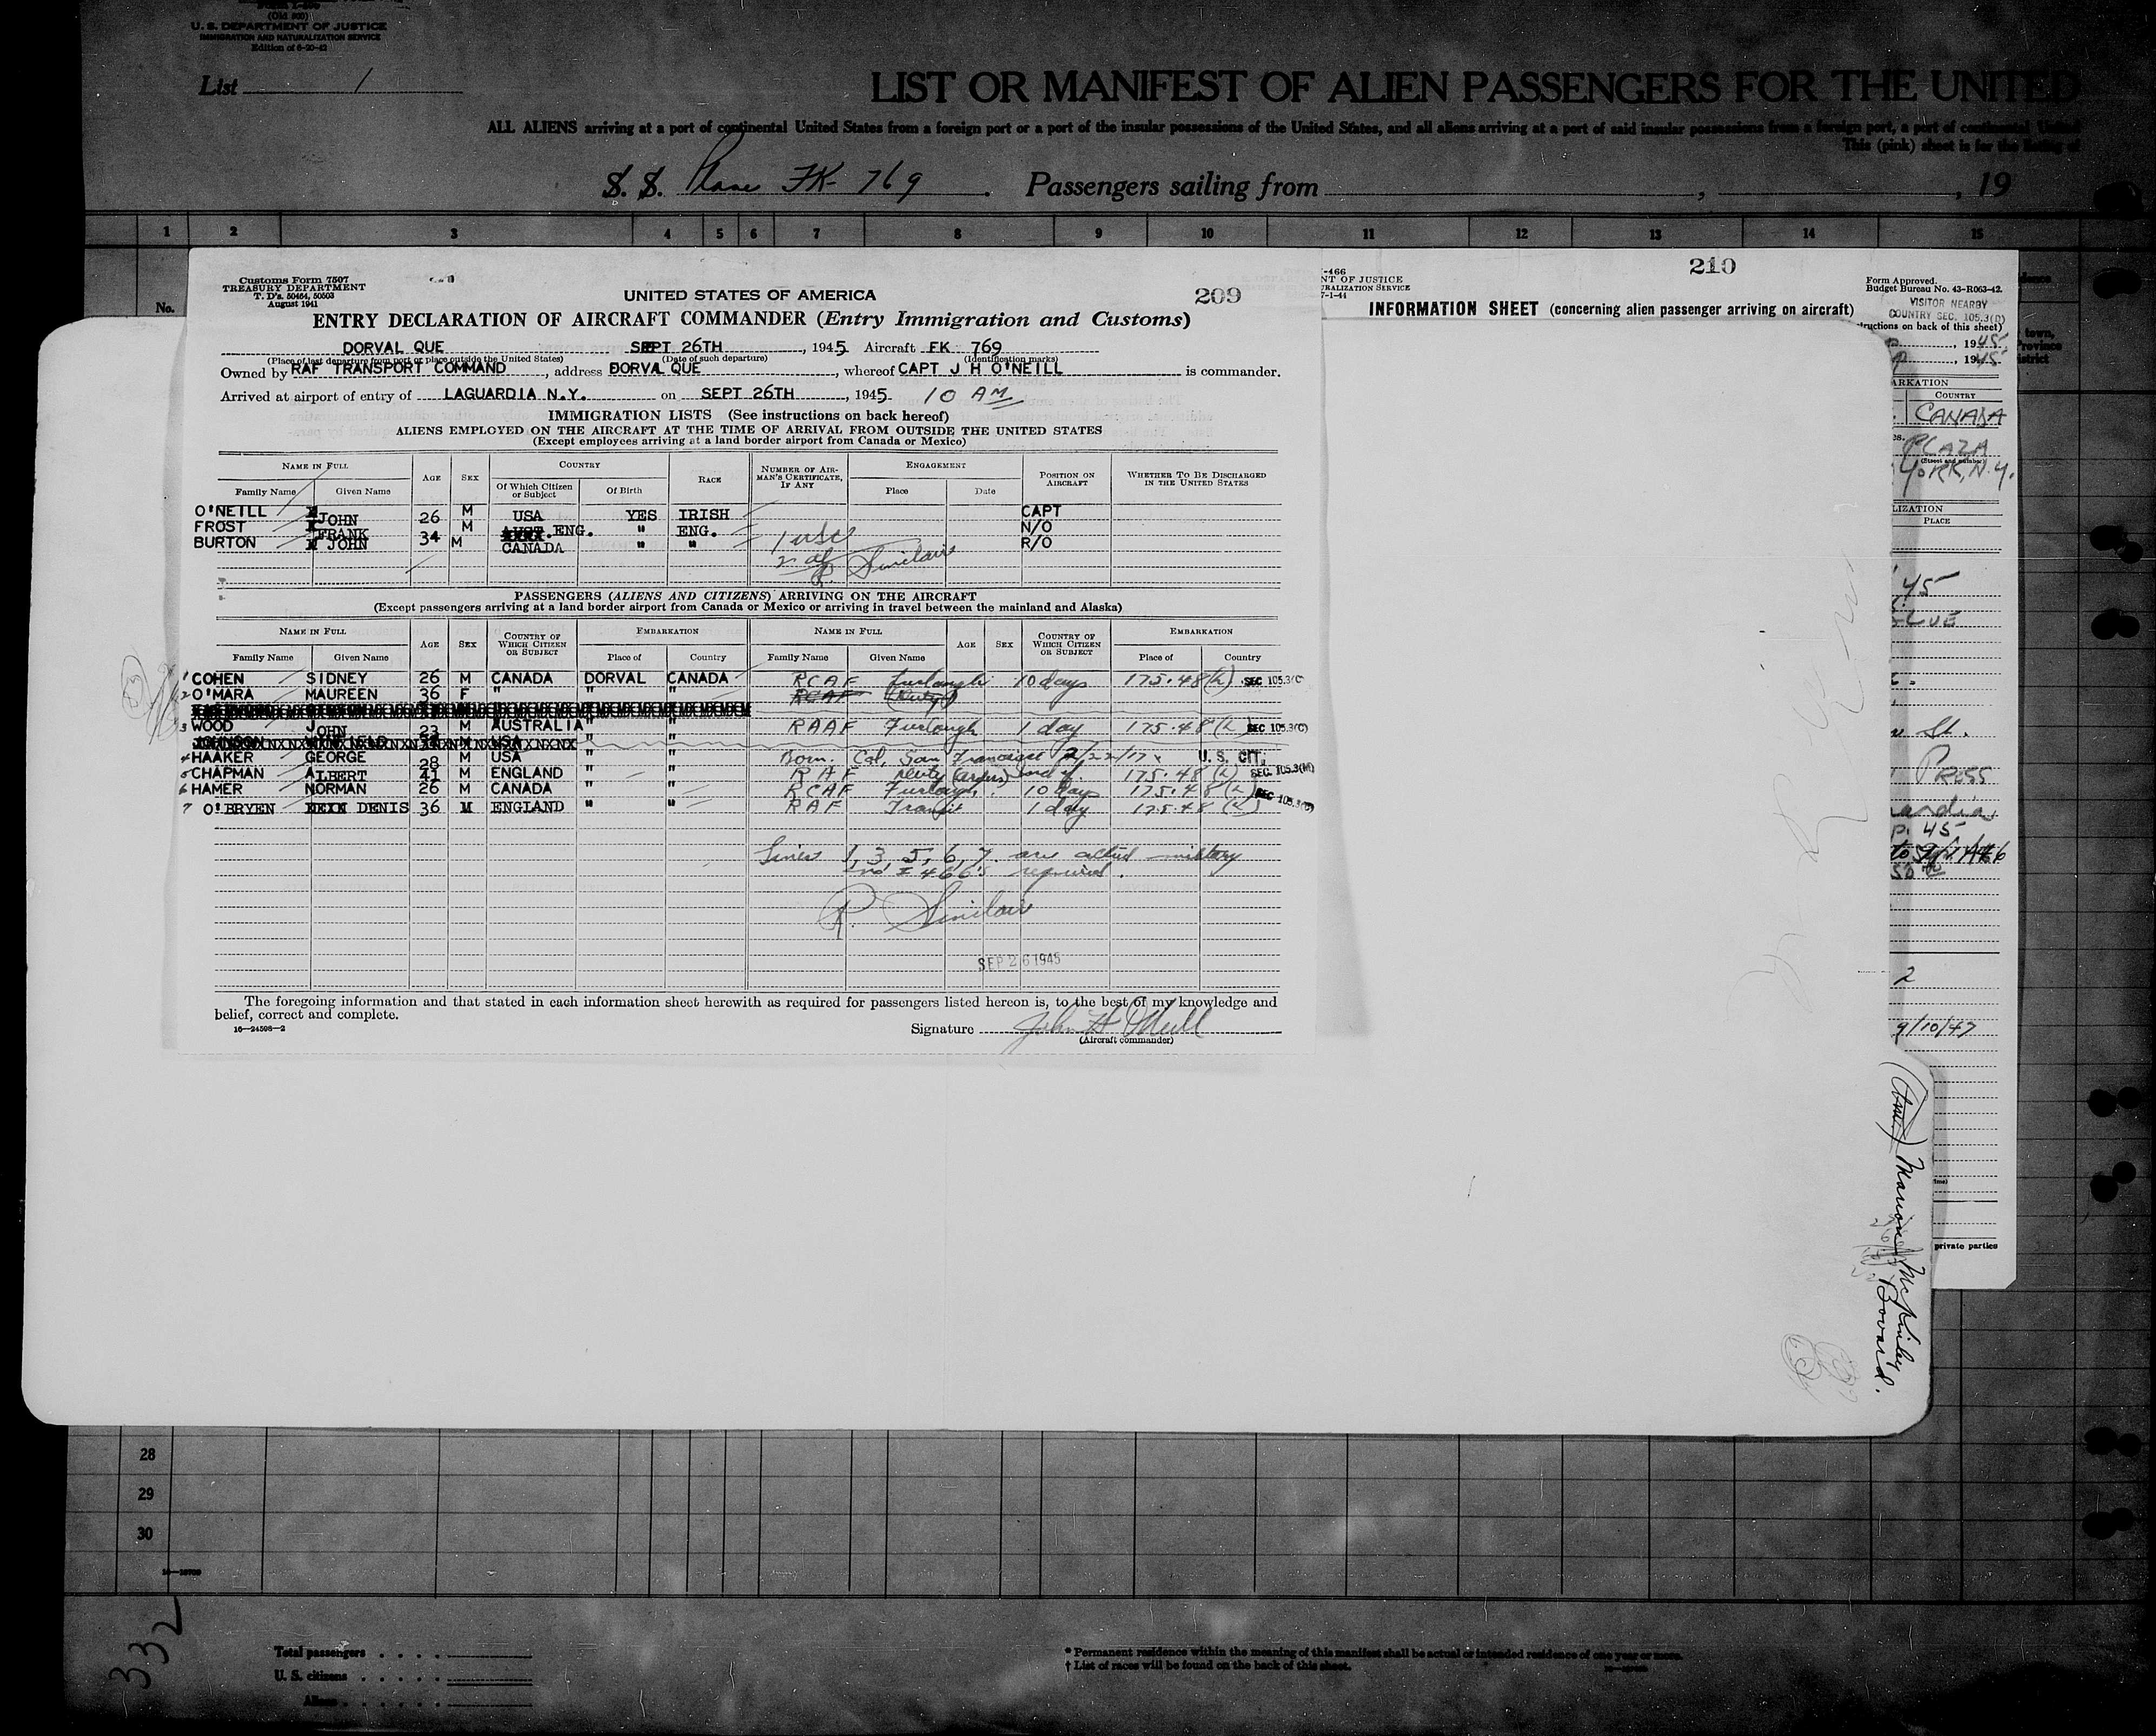 (Old 500)
U. S. DEPARTMENT OF JUSTICE
IMMIGRATION AND NATURALIZATION SERVICE
Edition of 6-20-42
List 1
LIST OR MANIFEST OF ALIEN PASSENGERS FOR THE UNITED
ALL ALIENS arriving at a port of continental United States from a foreign port or a port of the insular possessions of the United States, and all aliens arriving at a port of said insular possessions from a foreign port, a port of continental United
This (pink) sheet is for the listing of
S. S. Plane FK- 769 . Passengers sailing from , , 19
1 2 3 4 5 6 7 8 9 10 11 12 13 14 15
No.
Customs Form 7507
TREASURY DEPARTMENT
T. D's. 50464, 50503
August 1941
UNITED STATES OF AMERICA
209
ENTRY DECLARATION OF AIRCRAFT COMMANDER (Entry Immigration and Customs)
DORVAL QUE SEPT 26TH , 1945 Aircraft FK 769
(Place of last departure from port or place outside the United States) (Date of such departure) (Identification marks)
Owned by RAF TRANSPORT COMMAND , address DORVAL QUE , whereof CAPT J H O'NEILL is commander.
Arrived at airport of entry of LAGUARDIA N.Y. on SEPT 26TH , 1945 10 AM
IMMIGRATION LISTS (See instructions on back hereof)
ALIENS EMPLOYED ON THE AIRCRAFT AT THE TIME OF ARRIVAL FROM OUTSIDE THE UNITED STATES
(Except employees arriving at a land border airport from Canada or Mexico)
NAME IN FULL AGE SEX COUNTRY RACE NUMBER OF AIRMAN'S CERTIFICATE, IF ANY ENGAGEMENT POSITION ON AIRCRAFT WHETHER TO BE DISCHARGED IN THE UNITED STATES
Family Name Given Name Of Which Citizen or Subject Of Birth Place Date
O'NEILL JOHN 26 M USA YES IRISH CAPT
FROST FRANK 34 M ENG. " ENG. N/O
BURTON JOHN M CANADA " " R/O
1 USC
Sinclair
PASSENGERS (ALIENS AND CITIZENS) ARRIVING ON THE AIRCRAFT
(Except passengers arriving at a land border airport from Canada or Mexico or arriving in travel between the mainland and Alaska)
NAME IN FULL AGE SEX COUNTRY OF WHICH CITIZEN OR SUBJECT EMBARKATION NAME IN FULL AGE SEX COUNTRY OF WHICH CITIZEN OR SUBJECT EMBARKATION
Family Name Given Name Place of Country Family Name Given Name Place of Country
1 COHEN SIDNEY 26 M CANADA DORVAL CANADA RCAF Furlough 10 days 175.48(L) SEC 105.3(C)
2 O'MARA MAUREEN 36 F " " " RCAF (Duty)
3 WOOD JOHN 23 M AUSTRALIA " " RAAF Furlough 1 day 175.48(L) SEC 105.3(C)
JOHNSON M USA " "
4 HAAKER GEORGE 28 M USA " " Born. Cal, San Francisco 2/22/17. U. S. CIT.
5 CHAPMAN ALBERT 41 M ENGLAND " " RAF Duty 175.48(L) SEC. 105.3(M)
6 HAMER NORMAN 26 M CANADA " " RCAF Furlough 10 days 175.48(L) SEC 105.3(C)
7 O'BRYEN DENIS 36 M ENGLAND " " RAF Transit 1 day 175.48(L)
Lines 1, 3, 5, 6, 7. are allied military
no I 466's required.
R. Sinclair
SEP 26 1945
The foregoing information and that stated in each information sheet herewith as required for passengers listed hereon is, to the best of my knowledge and
belief, correct and complete.
16—24598—2
Signature John H O'Neill
(Aircraft commander)
-466
NT OF JUSTICE
RALIZATION SERVICE
7-1-44
210
Form Approved.
Budget Bureau No. 43-R063-42.
INFORMATION SHEET (concerning alien passenger arriving on aircraft)
VISITOR NEARBY
COUNTRY SEC. 105.3(D)
ructions on back of this sheet)
, 1945
, 1945
ARKATION
COUNTRY
CANADA
PLAZA
(Street and number)
YORK, N.Y.
LIZATION
PLACE
45
St.
PRESS
ardia
p. 45
2
9/10/47
private parties
town,
Province
istrict
Marion McKinley
Bovard.
28
29
30
332
Total passengers
U. S. citizens
Aliens
* Permanent residence within the meaning of this manifest shall be actual or intended residence of one year or more.
† List of races will be found on the back of this sheet.